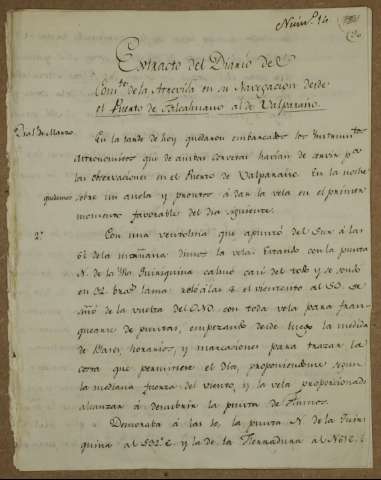 Núm.º 16
Extracto del Diario de
Com.te de la Atrevida en su Navegacion desde
el Puerto de Talcahuano al de Valparaiso.
Dia 1.º de Marzo. En la tarde de hoy quedaron embarcados los instrumtos
Astronomicos que de ambas corvetas havian de servir pa
las observaciones en el Puerto de Valparaiso. En la noche
quedamos sobre un ancla y prontos á dar la vela en el primer
momento favorable del dia siguiente.
2.º Con una ventolina que apuntó del Sur á las
6 de la mañana dimos la vela: Estando con la punta
N. de la Isla Quiriquina calmó casi del todo y se
en 32 brazs lama: á las el viento al SO. Se
de la vuelta del ONO. con toda vela para fran-
quearme de puntas, empezando desde luego la medida
de Bases, horarios, y marcaciones para trazar la
costa que permitiese el dia, proponiendome segun
la mediana fuerza del viento, y la vela proporcionada
alcanzar á descubrir la punta de
Demoraba á las la punta N. de la Quiri-
quina al y la de la Herradura al